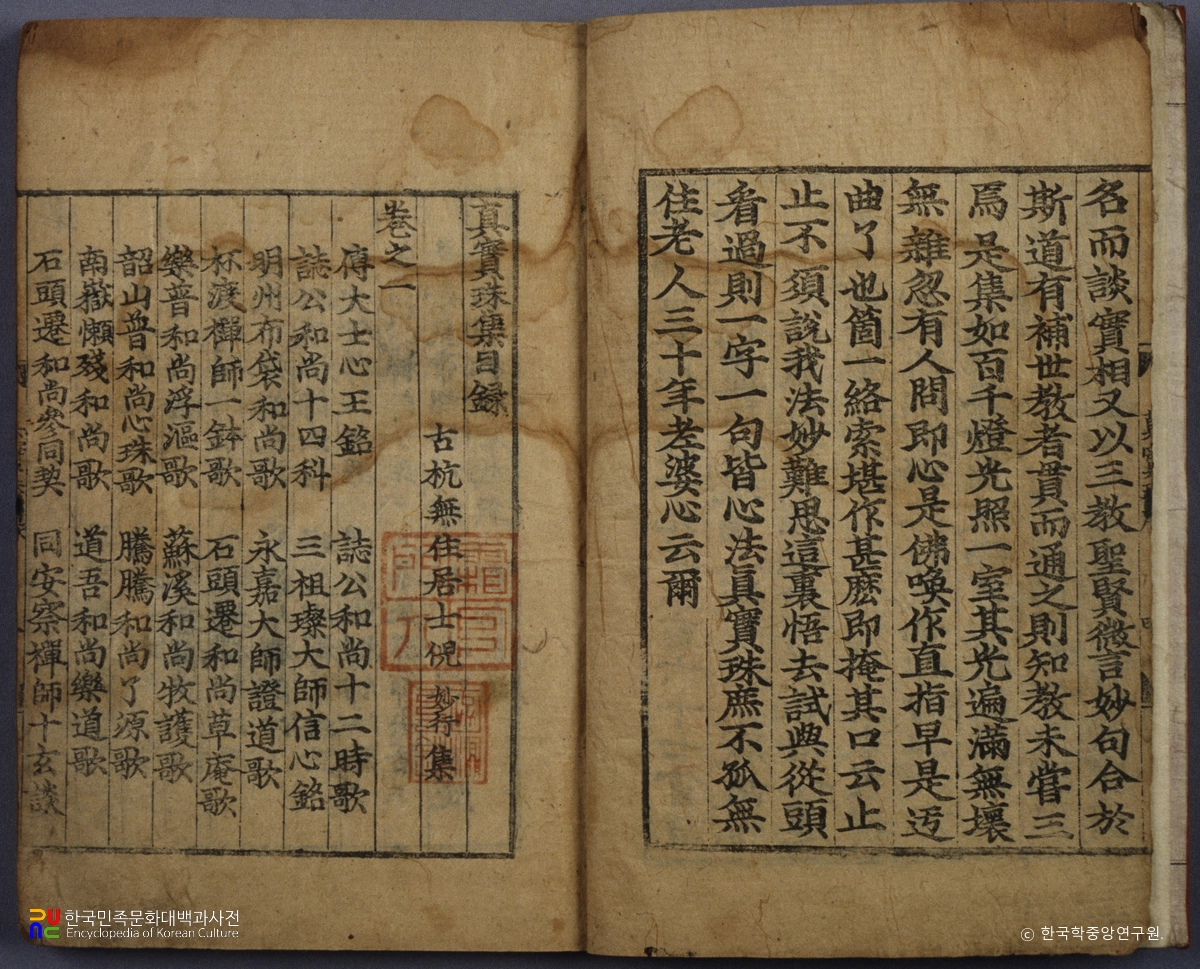 名而談實相又以三教聖賢微言妙句合於
斯道有補世教者貫而通之則知教未嘗三
焉是集如百千燈光照一室其光遍滿無壞
無雜忽有人問即心是佛喚作直指早是迃
曲了也箇一絡索堪作甚麽即掩其口云止
止不須說我法妙難思這裏悟去試與從頭
看過則一字一句皆心法真實珠庶不孤無
住老人三十年老婆心云爾
真實珠集目録
古杭無住居士倪 妙行集
卷之一
傅大士心王銘 誌公和尚十二時歌
誌公和尚十四科 三祖璨大師信心銘
明州布袋和尚歌 永嘉大師證道歌
杯渡禪師一鉢歌 石頭遷和尚草庵歌
樂普和尚浮漚歌 蘇溪和尚牧護歌
韶山普和尚心珠歌 騰騰和尚了源歌
南嶽懶殘和尚歌 道吾和尚樂道歌
石頭遷和尚參同契 同安察禪師十玄談
한국민족문화대백과사전
Encyclopedia of Korean Culture
ⓒ 한국학중앙연구원.